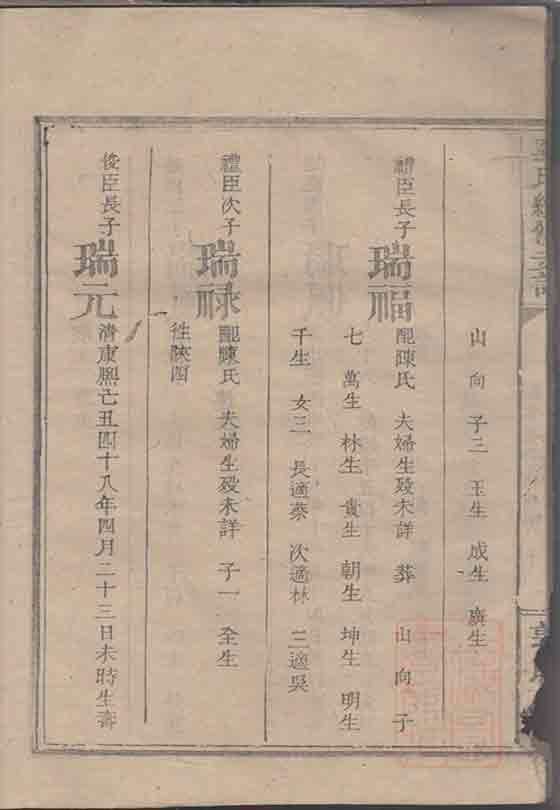 山向 子三 玉生 成生 廣生
禮臣長子 瑞福 配陳氏 夫婦生歿未詳 葬 山向 子
七 萬生 林生 貴生 朝生 坤生 明生
千生 女三 長適蔡 次適林 三適吳
禮臣次子 瑞祿 配陳氏 夫婦生歿未詳 子一 全生
徃陝西
俊臣長子 瑞元 清康熙己丑四十八年四月二十三日未時生壽